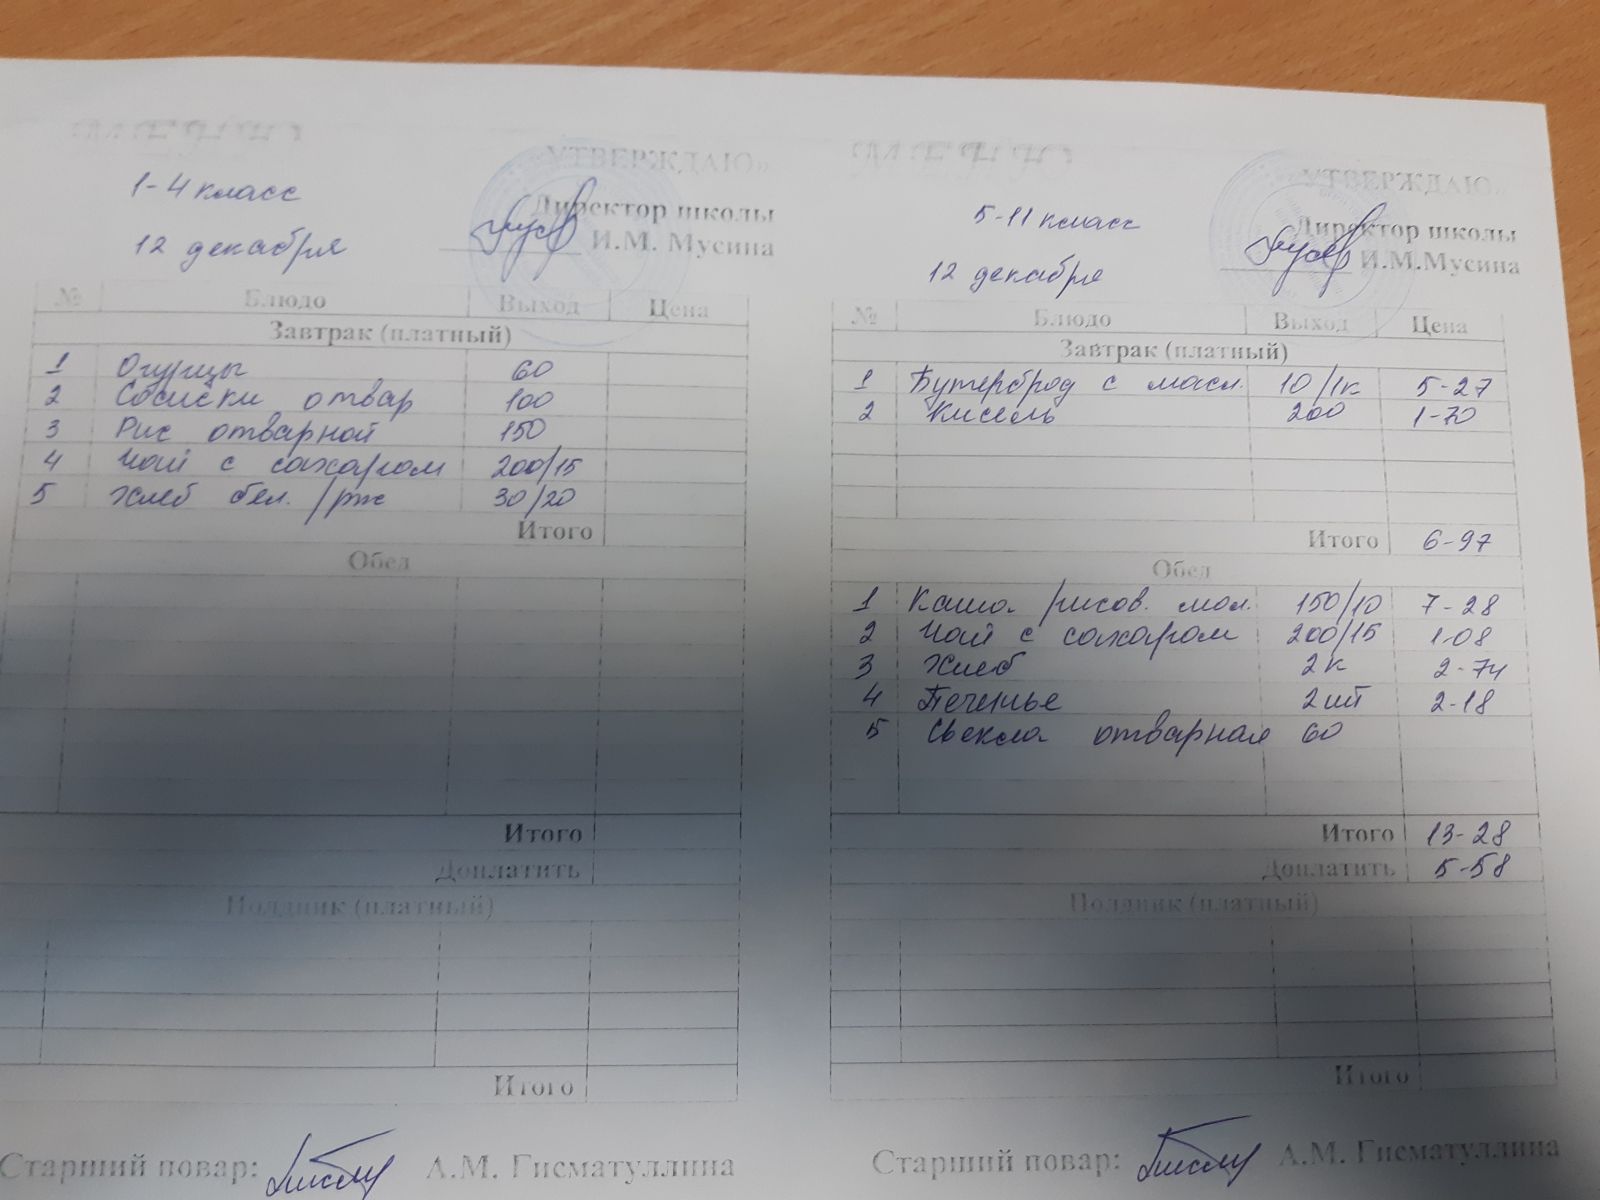 МЕНЮ
1-4 класс
12 декабря
«УТВЕРЖДАЮ»
Директор школы
И.М. Мусина
№ Блюдо Выход Цена
Завтрак (платный)
1 Огурцы 60
2 Сосиски отвар 100
3 Рис отварной 150
4 Чай с сахаром 200/15
5 Хлеб бел. /рж 30/20
Итого
Обед
Итого
Доплатить
Полдник (платный)
Итого
Старший повар: А.М. Гисматуллина
МЕНЮ
5-11 класс
12 декабря
«УТВЕРЖДАЮ»
Директор школы
И.М.Мусина
№ Блюдо Выход Цена
Завтрак (платный)
1 Бутерброд с масл. 10/1к 5-27
2 Кисель 200 1-70
Итого 6-97
Обед
1 Каша рисов. мол. 150/10 7-28
2 Чай с сахаром 200/15 1-08
3 Хлеб 2к 2-74
4 Печенье 2шт 2-18
5 Свекла отварная 60
Итого 13-28
Доплатить 5-58
Полдник (платный)
Итого
Старший повар: А.М. Гисматуллина